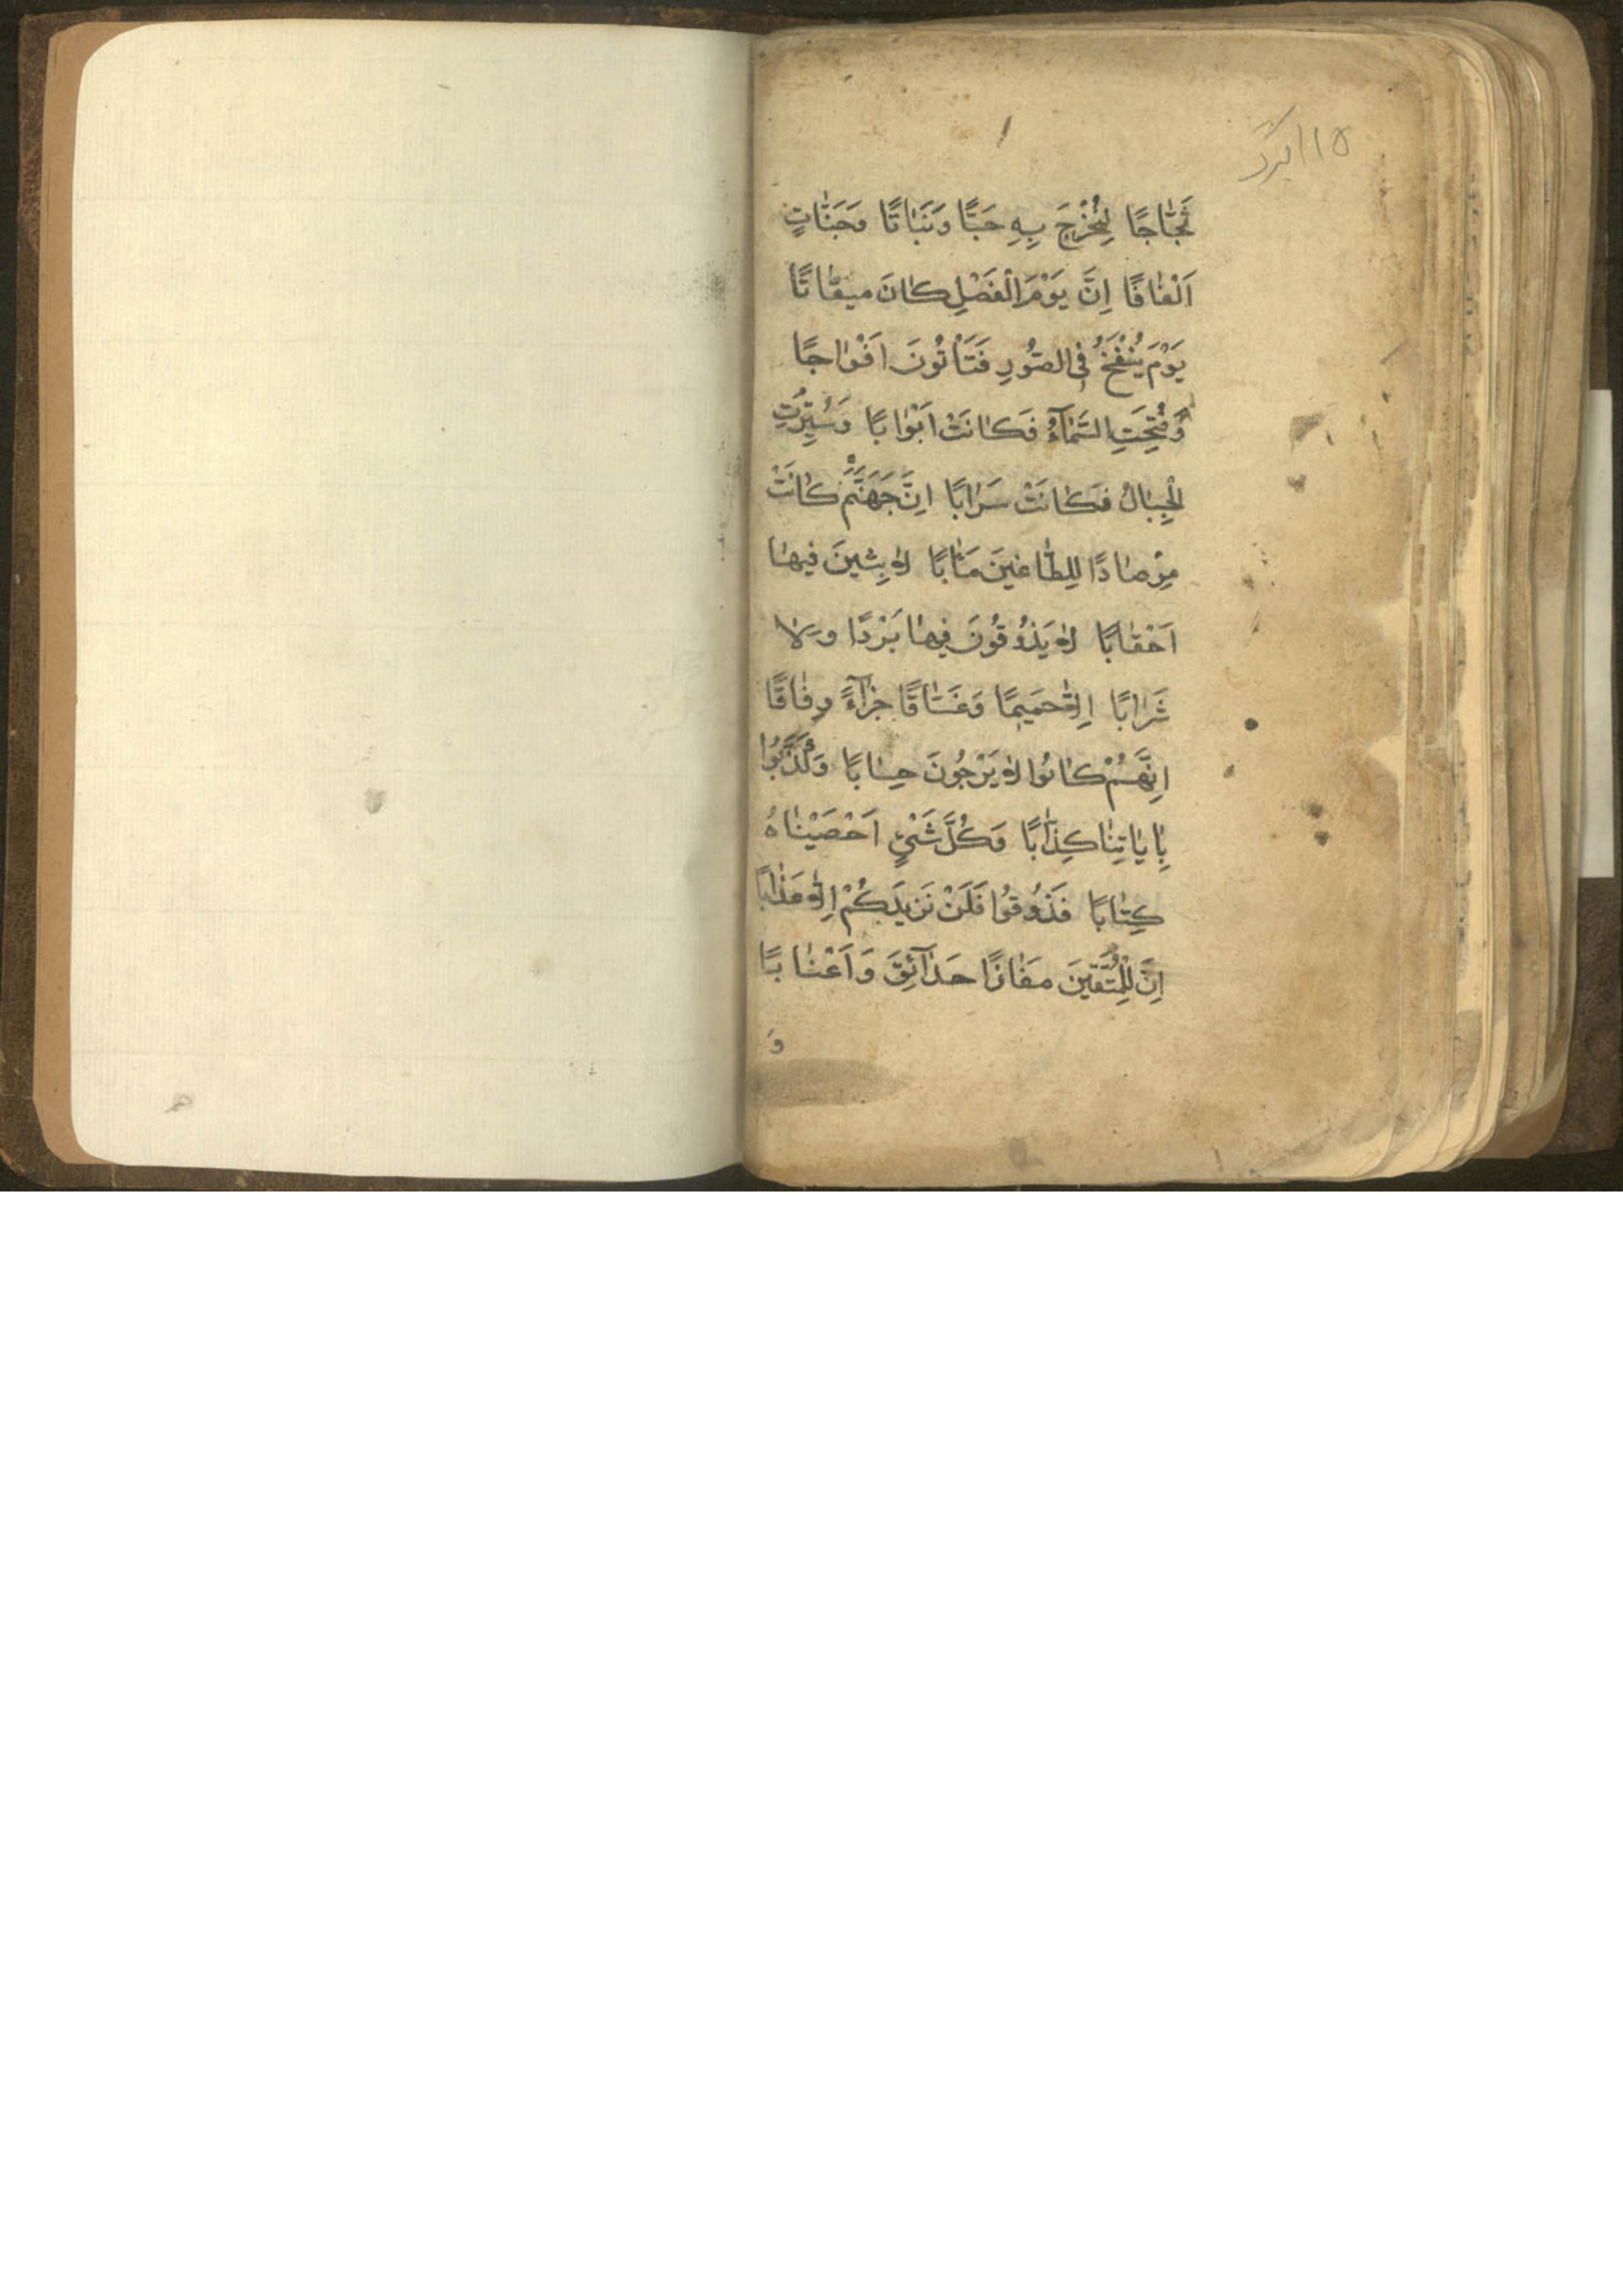 ثَجَّاجًا لِنُخْرِجَ بِهِ حَبًّا وَنَبَاتًا وَجَنَّاتٍ
اَلْفَافًا اِنَّ يَوْمَ الْفَصْلِ كَانَ مِيقَاتًا
يَوْمَ يُنْفَخُ فِى الصُّورِ فَتَأْتُونَ اَفْوَاجًا
وَفُتِحَتِ السَّمَآءُ فَكَانَتْ اَبْوَابًا وَسُيِّرَتِ
الْجِبَالُ فَكَانَتْ سَرَابًا اِنَّ جَهَنَّمَ كَانَتْ
مِرْصَادًا لِلطَّاغِينَ مَـَٔابًا لَابِثِينَ فِيهَا
اَحْقَابًا لَا يَذُوقُونَ فِيهَا بَرْدًا وَلَا
شَرَابًا اِلَّا حَمِيمًا وَغَسَّاقًا جَزَآءً وِفَاقًا
اِنَّهُمْ كَانُوا لَا يَرْجُونَ حِسَابًا وَكَذَّبُوا
بِاٰيَاتِنَا كِذَّابًا وَكُلَّ شَىْءٍ اَحْصَيْنَاهُ
كِتَابًا فَذُوقُوا فَلَنْ نَزِيدَكُمْ اِلَّا عَذَابًا
اِنَّ لِلْمُتَّقِينَ مَفَازًا حَدَآئِقَ وَاَعْنَابًا
وَ